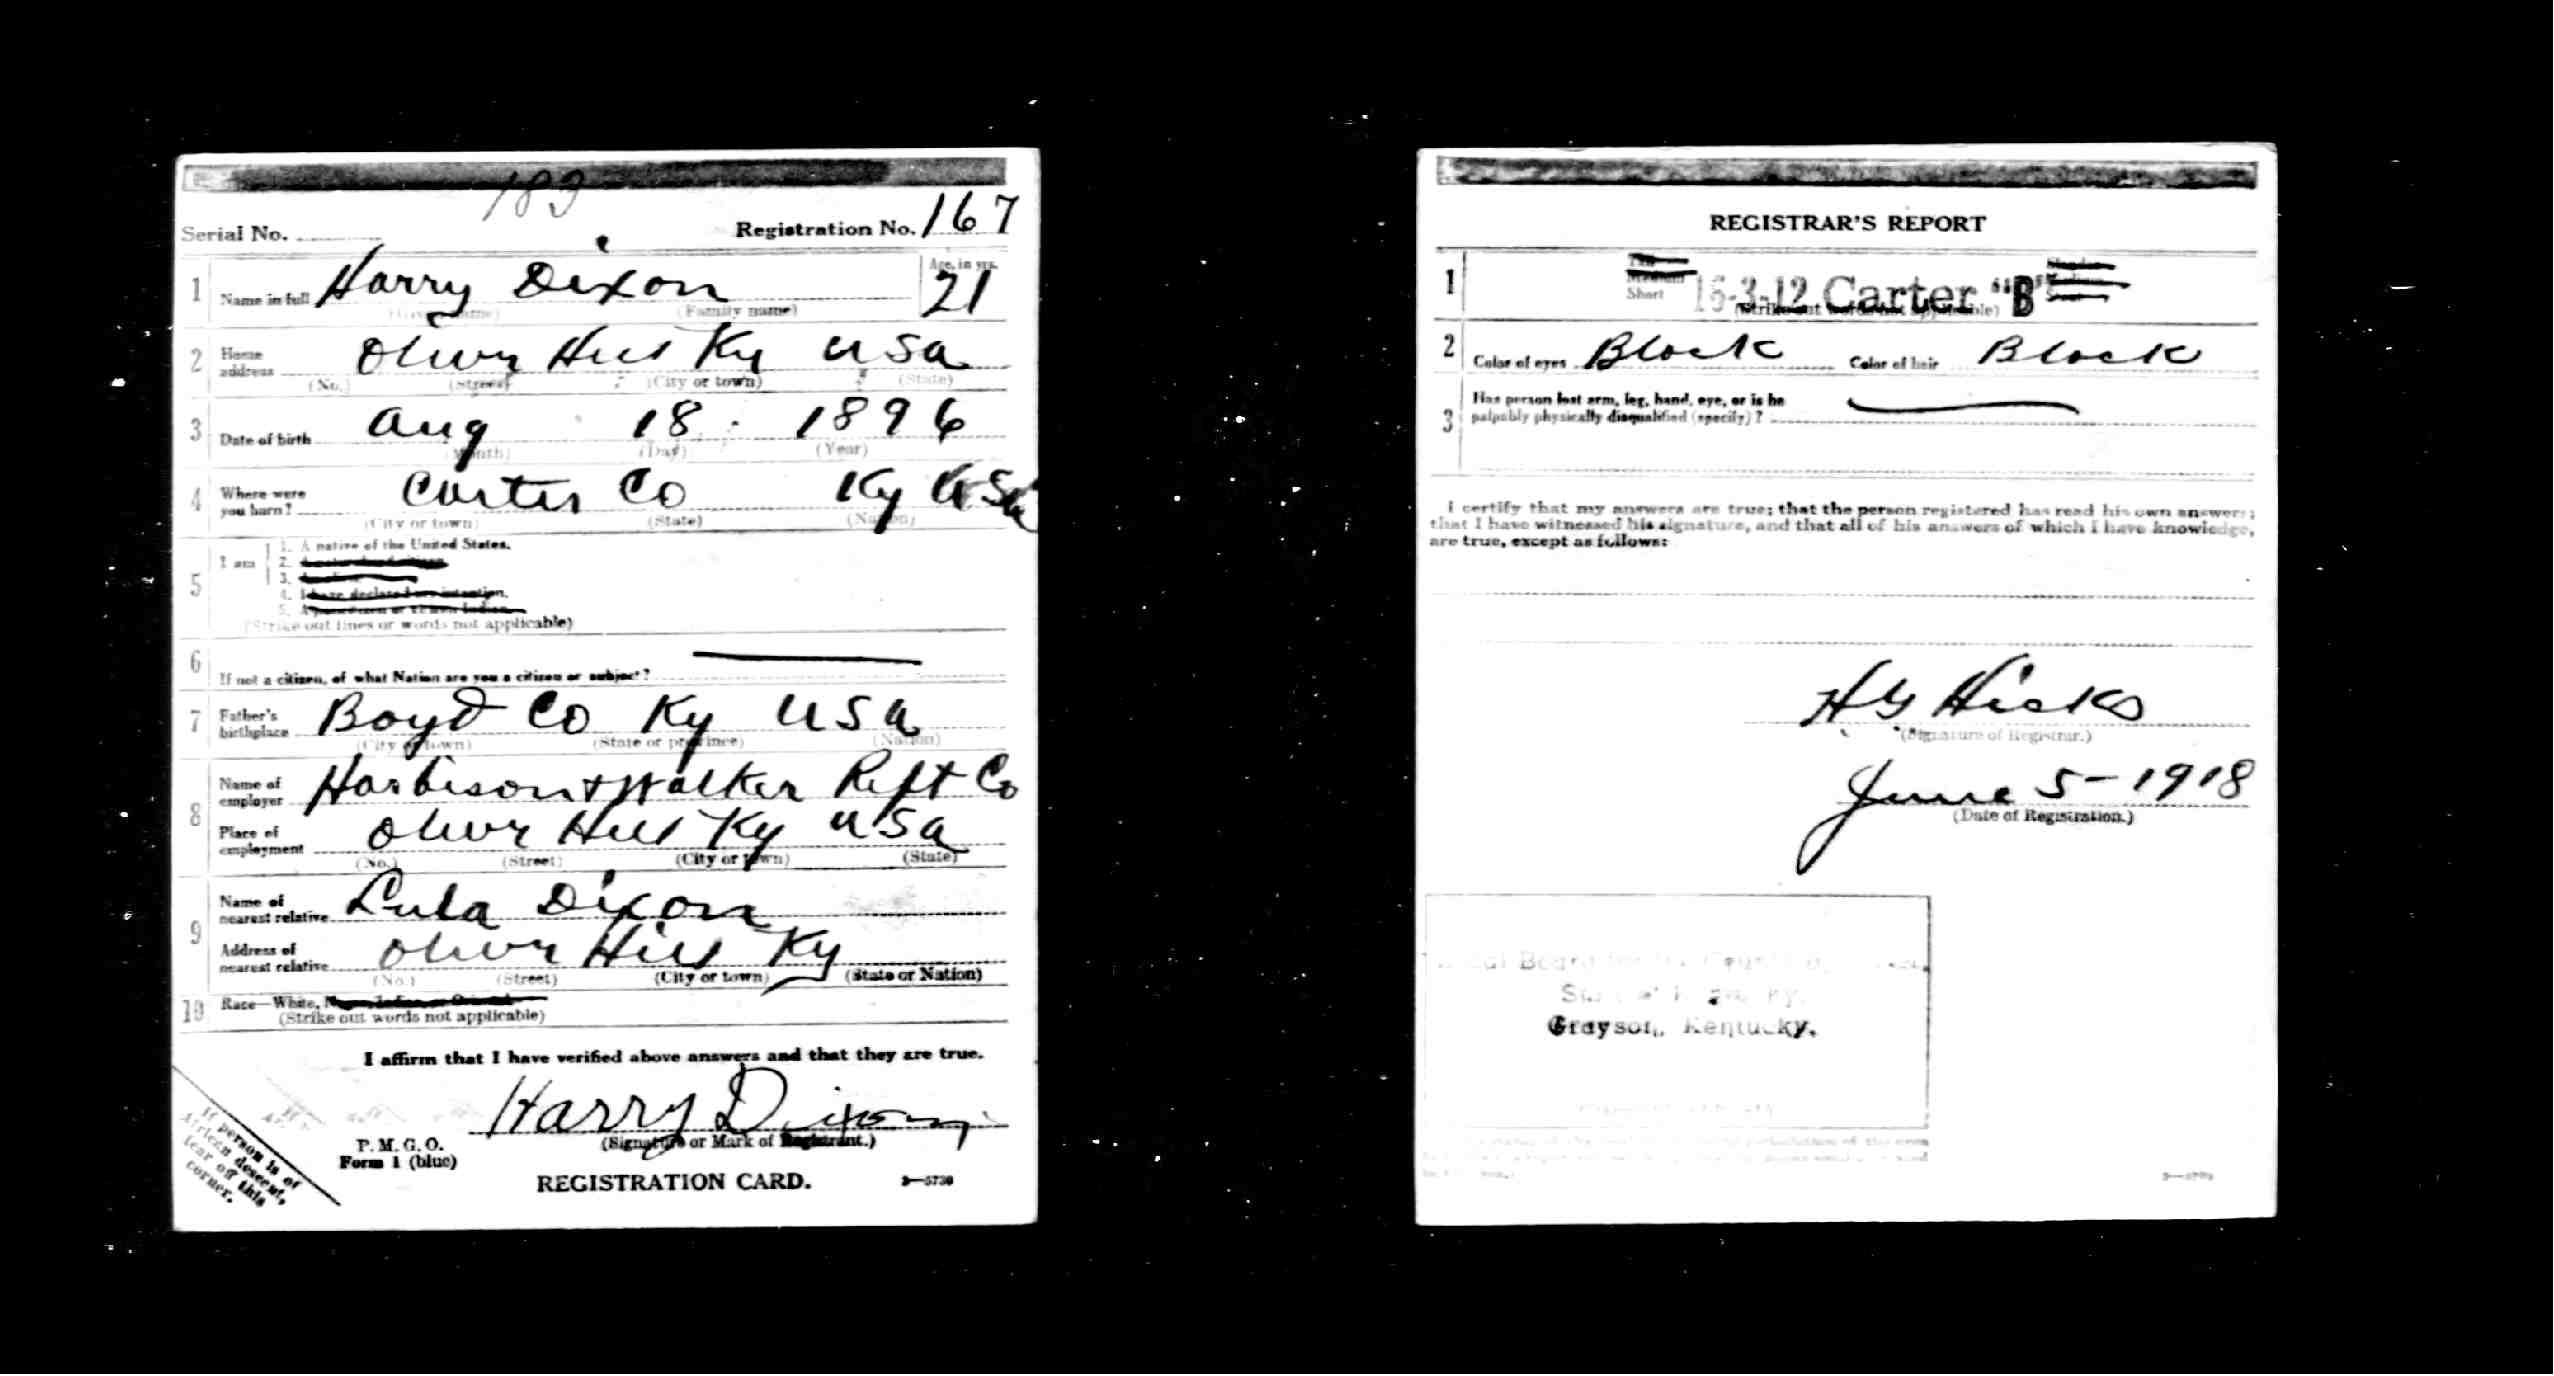 183
Serial No. Registration No. 167
1 Name in full Harry Dixon Age, in yrs. 21
(Family name)
2 Home address Olive Hill Ky USA
(No.) (Street) (City or town) (State)
3 Date of birth Aug 18 1896
(Month) (Day) (Year)
4 Where were you born? Carter Co Ky USA
(City or town) (State) (Nation)
5 I am 1. A native of the United States.
2.
3.
4. I have declared my intention.
5.
(Strike out lines or words not applicable)
6 If not a citizen, of what Nation are you a citizen or subject?
7 Father's birthplace Boyd Co Ky USA
(City or town) (State or province) (Nation)
8 Name of employer Harbison & Walker Reft Co
Place of employment Olive Hill Ky USA
(No.) (Street) (City or town) (State)
9 Name of nearest relative Lula Dixon
Address of nearest relative Olive Hill Ky
(No.) (Street) (City or town) (State or Nation)
10 Race—White, Negro, Indian, or Oriental
(Strike out words not applicable)
I affirm that I have verified above answers and that they are true.
Harry Dixon
(Signature or Mark of Registrant.)
P. M. G. O.
Form 1 (blue)
REGISTRATION CARD. 3—5730
If person is of
African descent,
tear off this
corner.
REGISTRAR'S REPORT
1 Tall
Medium
Short 16-3-12 Carter "B"
(Strike out words not applicable)
2 Color of eyes Black Color of hair Black
3 Has person lost arm, leg, hand, eye, or is he
palpably physically disqualified (specify)?
I certify that my answers are true; that the person registered has read his own answers;
that I have witnessed his signature, and that all of his answers of which I have knowledge,
are true, except as follows:
H G Hicks
(Signature of Registrar.)
June 5-1918
(Date of Registration.)
Grayson, Kentucky.